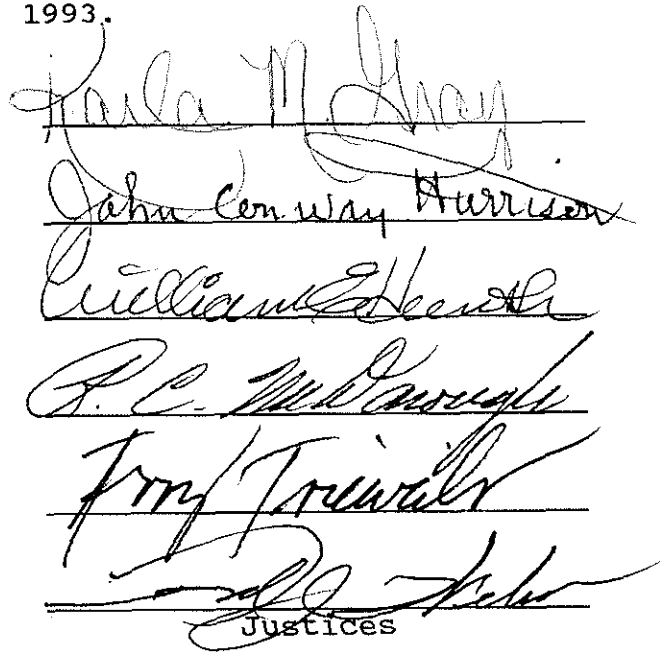 1993.
Karla M. Gray
John Conway Harrison
William E Hunt Sr
R. C. McDonough
Terry Trieweiler
Nelson
Justices